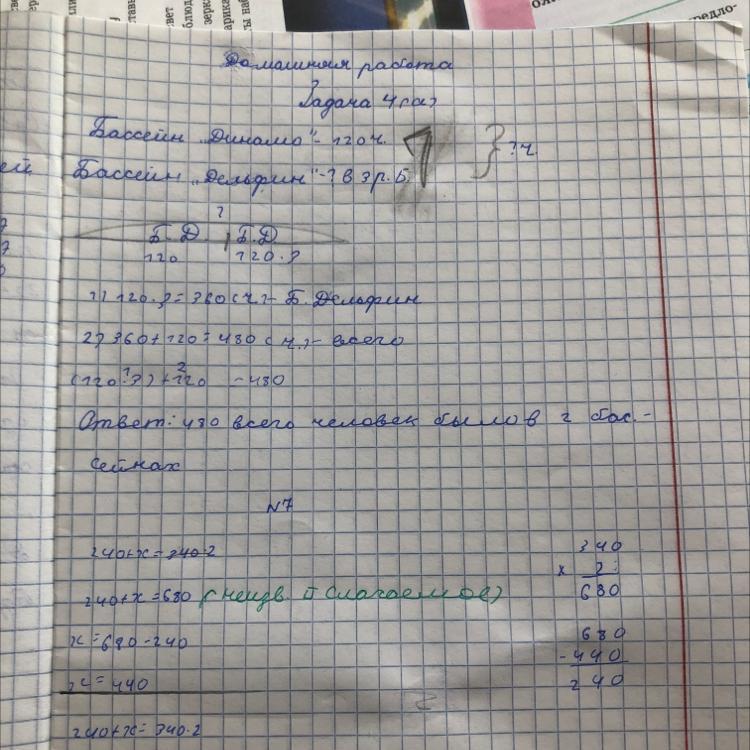 Домашняя работа
Задача 4(а)
Бассейн „Динамо" - 120 ч.
Бассейн „Дельфин" - ? в 3 р. Б.
} ? ч.
?
Б. Д. Б. Д
120 120·3
1) 120·3=360(ч.)- Б. Дельфин
2) 360+120=480(ч.)- всего
1 2
(120·3)+120 =480
Ответ: 480 всего человек было в 2 бас.-
сейнах
N7
240+х=340·2
240+х=680 (неизв. II слагаемое)
х=680-240
х=440
240+х=340·2
340
х 2
680
680
-440
240